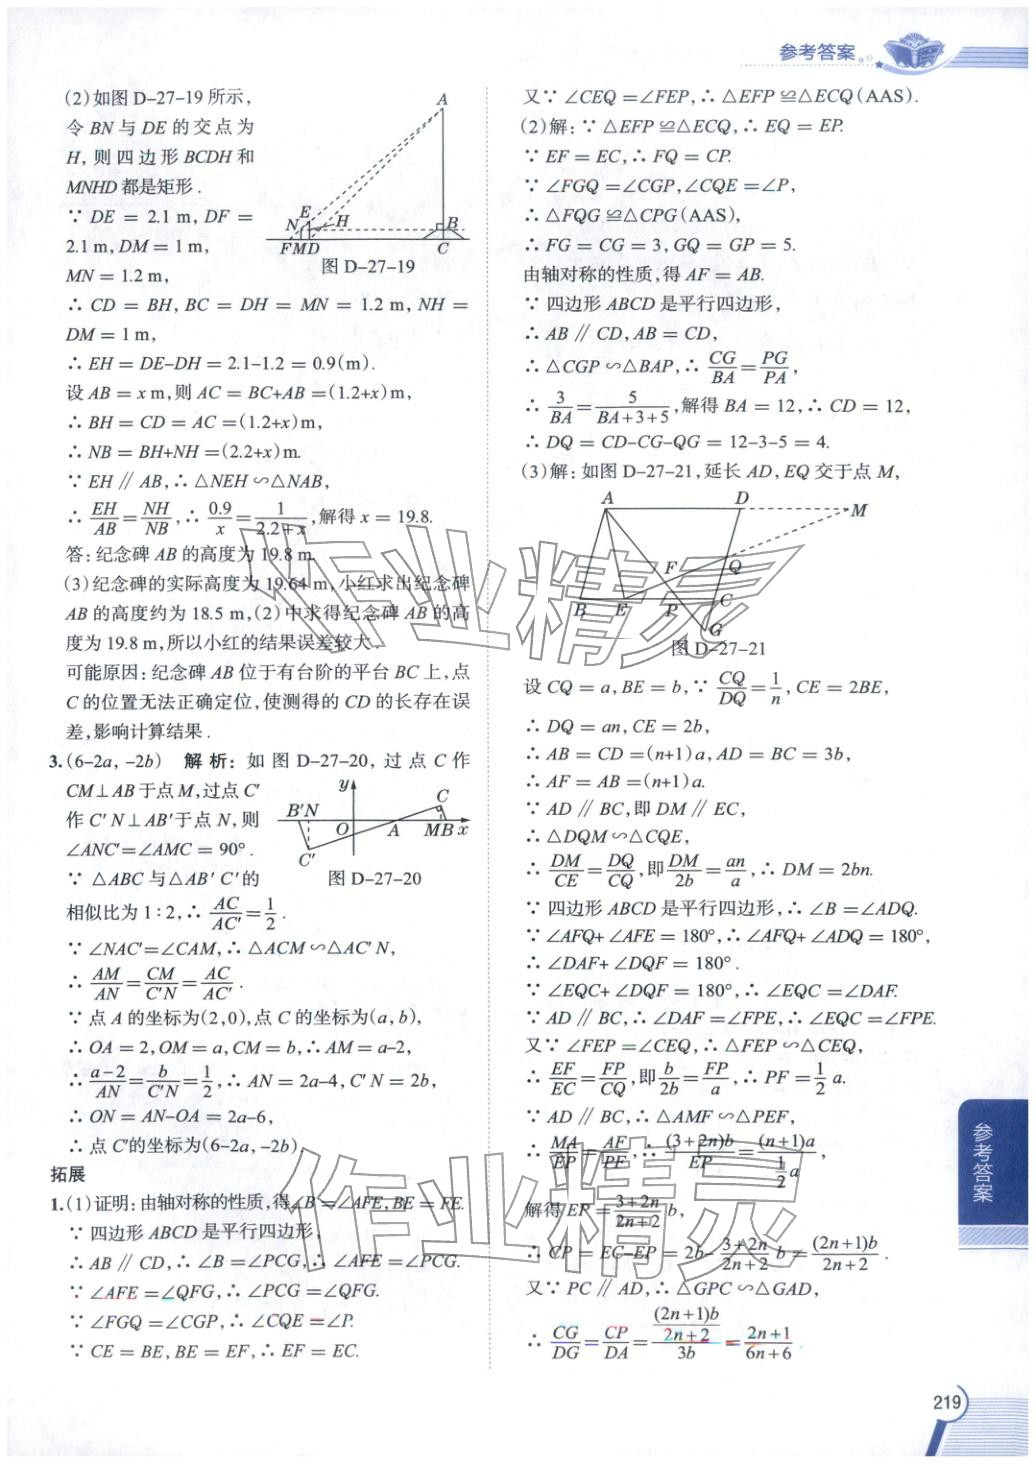 参考答案
(2)如图 D-27-19 所示，
令 BN 与 DE 的交点为
H，则四边形 BCDH 和
MNHD 都是矩形．
∵ DE = 2.1 m, DF =
2.1 m, DM = 1 m,
MN = 1.2 m,
A
E
N
H
B
F M D
C
图 D-27-19
∴ CD = BH, BC = DH = MN = 1.2 m, NH =
DM = 1 m,
∴ EH = DE-DH = 2.1-1.2 = 0.9(m).
设 AB = x m,则 AC = BC+AB =(1.2+x)m,
∴ BH = CD = AC =(1.2+x)m,
∴ NB = BH+NH =(2.2+x)m.
∵ EH ∥ AB,∴ △NEH ∽△NAB,
∴ EH/AB = NH/NB ,∴ 0.9/x = 1/(2.2+x) ,解得 x = 19.8.
答：纪念碑 AB 的高度为 19.8 m.
(3)纪念碑的实际高度为 19.64 m,小红求出纪念碑
AB 的高度约为 18.5 m,(2)中求得纪念碑 AB 的高
度为 19.8 m,所以小红的结果误差较大．
可能原因：纪念碑 AB 位于有台阶的平台 BC 上，点
C 的位置无法正确定位，使测得的 CD 的长存在误
差，影响计算结果．
3.(6-2a, -2b) 解析：如图 D-27-20，过点 C 作
CM⊥AB于点M,过点C′
作C′N⊥AB′于点N,则
∠ANC′=∠AMC = 90°.
∵ △ABC与△AB′C′的
y
B′N
C
O
A
M B x
C′
图 D-27-20
相似比为 1∶2,∴ AC/AC′ = 1/2 .
∵ ∠NAC′=∠CAM,∴ △ACM ∽△AC′N,
∴ AM/AN = CM/C′N = AC/AC′ .
∵ 点 A 的坐标为(2,0),点 C 的坐标为(a,b),
∴ OA = 2,OM = a,CM = b,∴ AM = a-2,
∴ (a-2)/AN = b/C′N = 1/2 ,∴ AN = 2a-4,C′N = 2b,
∴ ON = AN-OA = 2a-6,
∴ 点 C′的坐标为(6-2a,-2b).
拓展
1.(1)证明：由轴对称的性质，得∠B =∠AFE,BE = FE.
∵ 四边形 ABCD 是平行四边形，
∴ AB ∥ CD,∴ ∠B =∠PCG,∴ ∠AFE =∠PCG.
∵ ∠AFE =∠QFG,∴ ∠PCG =∠QFG.
∵ ∠FGQ =∠CGP,∴ ∠CQE =∠P.
∵ CE = BE,BE = EF,∴ EF = EC.
又∵ ∠CEQ =∠FEP,∴ △EFP ≌△ECQ(AAS).
(2)解：∵ △EFP ≌△ECQ,∴ EQ = EP.
∵ EF = EC,∴ FQ = CP.
∵ ∠FGQ =∠CGP,∠CQE =∠P,
∴ △FQG ≌△CPG(AAS),
∴ FG = CG = 3,GQ = GP = 5.
由轴对称的性质，得 AF = AB.
∵ 四边形 ABCD 是平行四边形，
∴ AB ∥ CD,AB = CD,
∴ △CGP ∽△BAP,∴ CG/BA = PG/PA ,
∴ 3/BA = 5/(BA+3+5) ,解得 BA = 12,∴ CD = 12,
∴ DQ = CD-CG-QG = 12-3-5 = 4.
(3)解：如图 D-27-21,延长 AD,EQ 交于点 M,
A
D
M
F
Q
B
E
P
C
G
图 D-27-21
设 CQ = a,BE = b,∵ CQ/DQ = 1/n ,CE = 2BE,
∴ DQ = an,CE = 2b,
∴ AB = CD =(n+1)a,AD = BC = 3b,
∴ AF = AB =(n+1)a.
∵ AD ∥ BC,即 DM ∥ EC,
∴ △DQM ∽△CQE,
∴ DM/CE = DQ/CQ ,即 DM/2b = an/a ,∴ DM = 2bn.
∵ 四边形 ABCD 是平行四边形,∴ ∠B =∠ADQ.
∵ ∠AFQ+∠AFE = 180°,∴ ∠AFQ+∠ADQ = 180°,
∴ ∠DAF+∠DQF = 180°.
∵ ∠EQC+∠DQF = 180°,∴ ∠EQC =∠DAF.
∵ AD ∥ BC,∴ ∠DAF =∠FPE,∴ ∠EQC =∠FPE.
又∵ ∠FEP =∠CEQ,∴ △FEP ∽△CEQ,
∴ EF/EC = FP/CQ ,即 b/2b = FP/a ,∴ PF = 1/2 a.
∵ AD ∥ BC,∴ △AMF ∽△PEF,
∴ MA/EP = AF/PF ,∴ (3+2n)b/EP = (n+1)a/(1/2 a) ,
解得 EP = (3+2n)/(2n+2) b,
∴ CP = EC-EP = 2b- (3+2n)/(2n+2) b = (2n+1)b/(2n+2) .
又∵ PC ∥ AD,∴ △GPC ∽△GAD,
∴ CG/DG = CP/DA = ((2n+1)b/(2n+2))/3b = (2n+1)/(6n+6)
参考答案
219
作业精灵
作业精灵